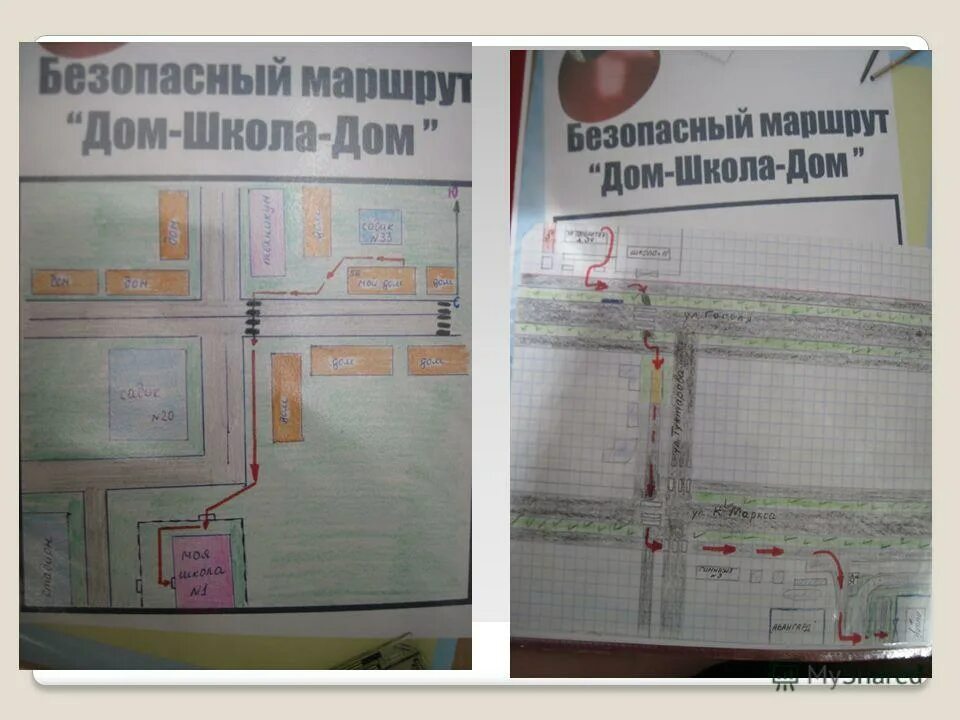 Безопасный маршрут
"Дом-Школа-Дом"
Ю
дом
техникум
дом
садик
№33
дом
дом
5Б
мой дом
дом
С
садик
№20
дом
дом
дом
стадион
моя
школа
№1
Безопасный маршрут
"Дом-Школа-Дом"
ул. Гоголя
ул. Тухтарова
ул. К. Маркса
гимназия
№3
АВАНГАРД
MyShared